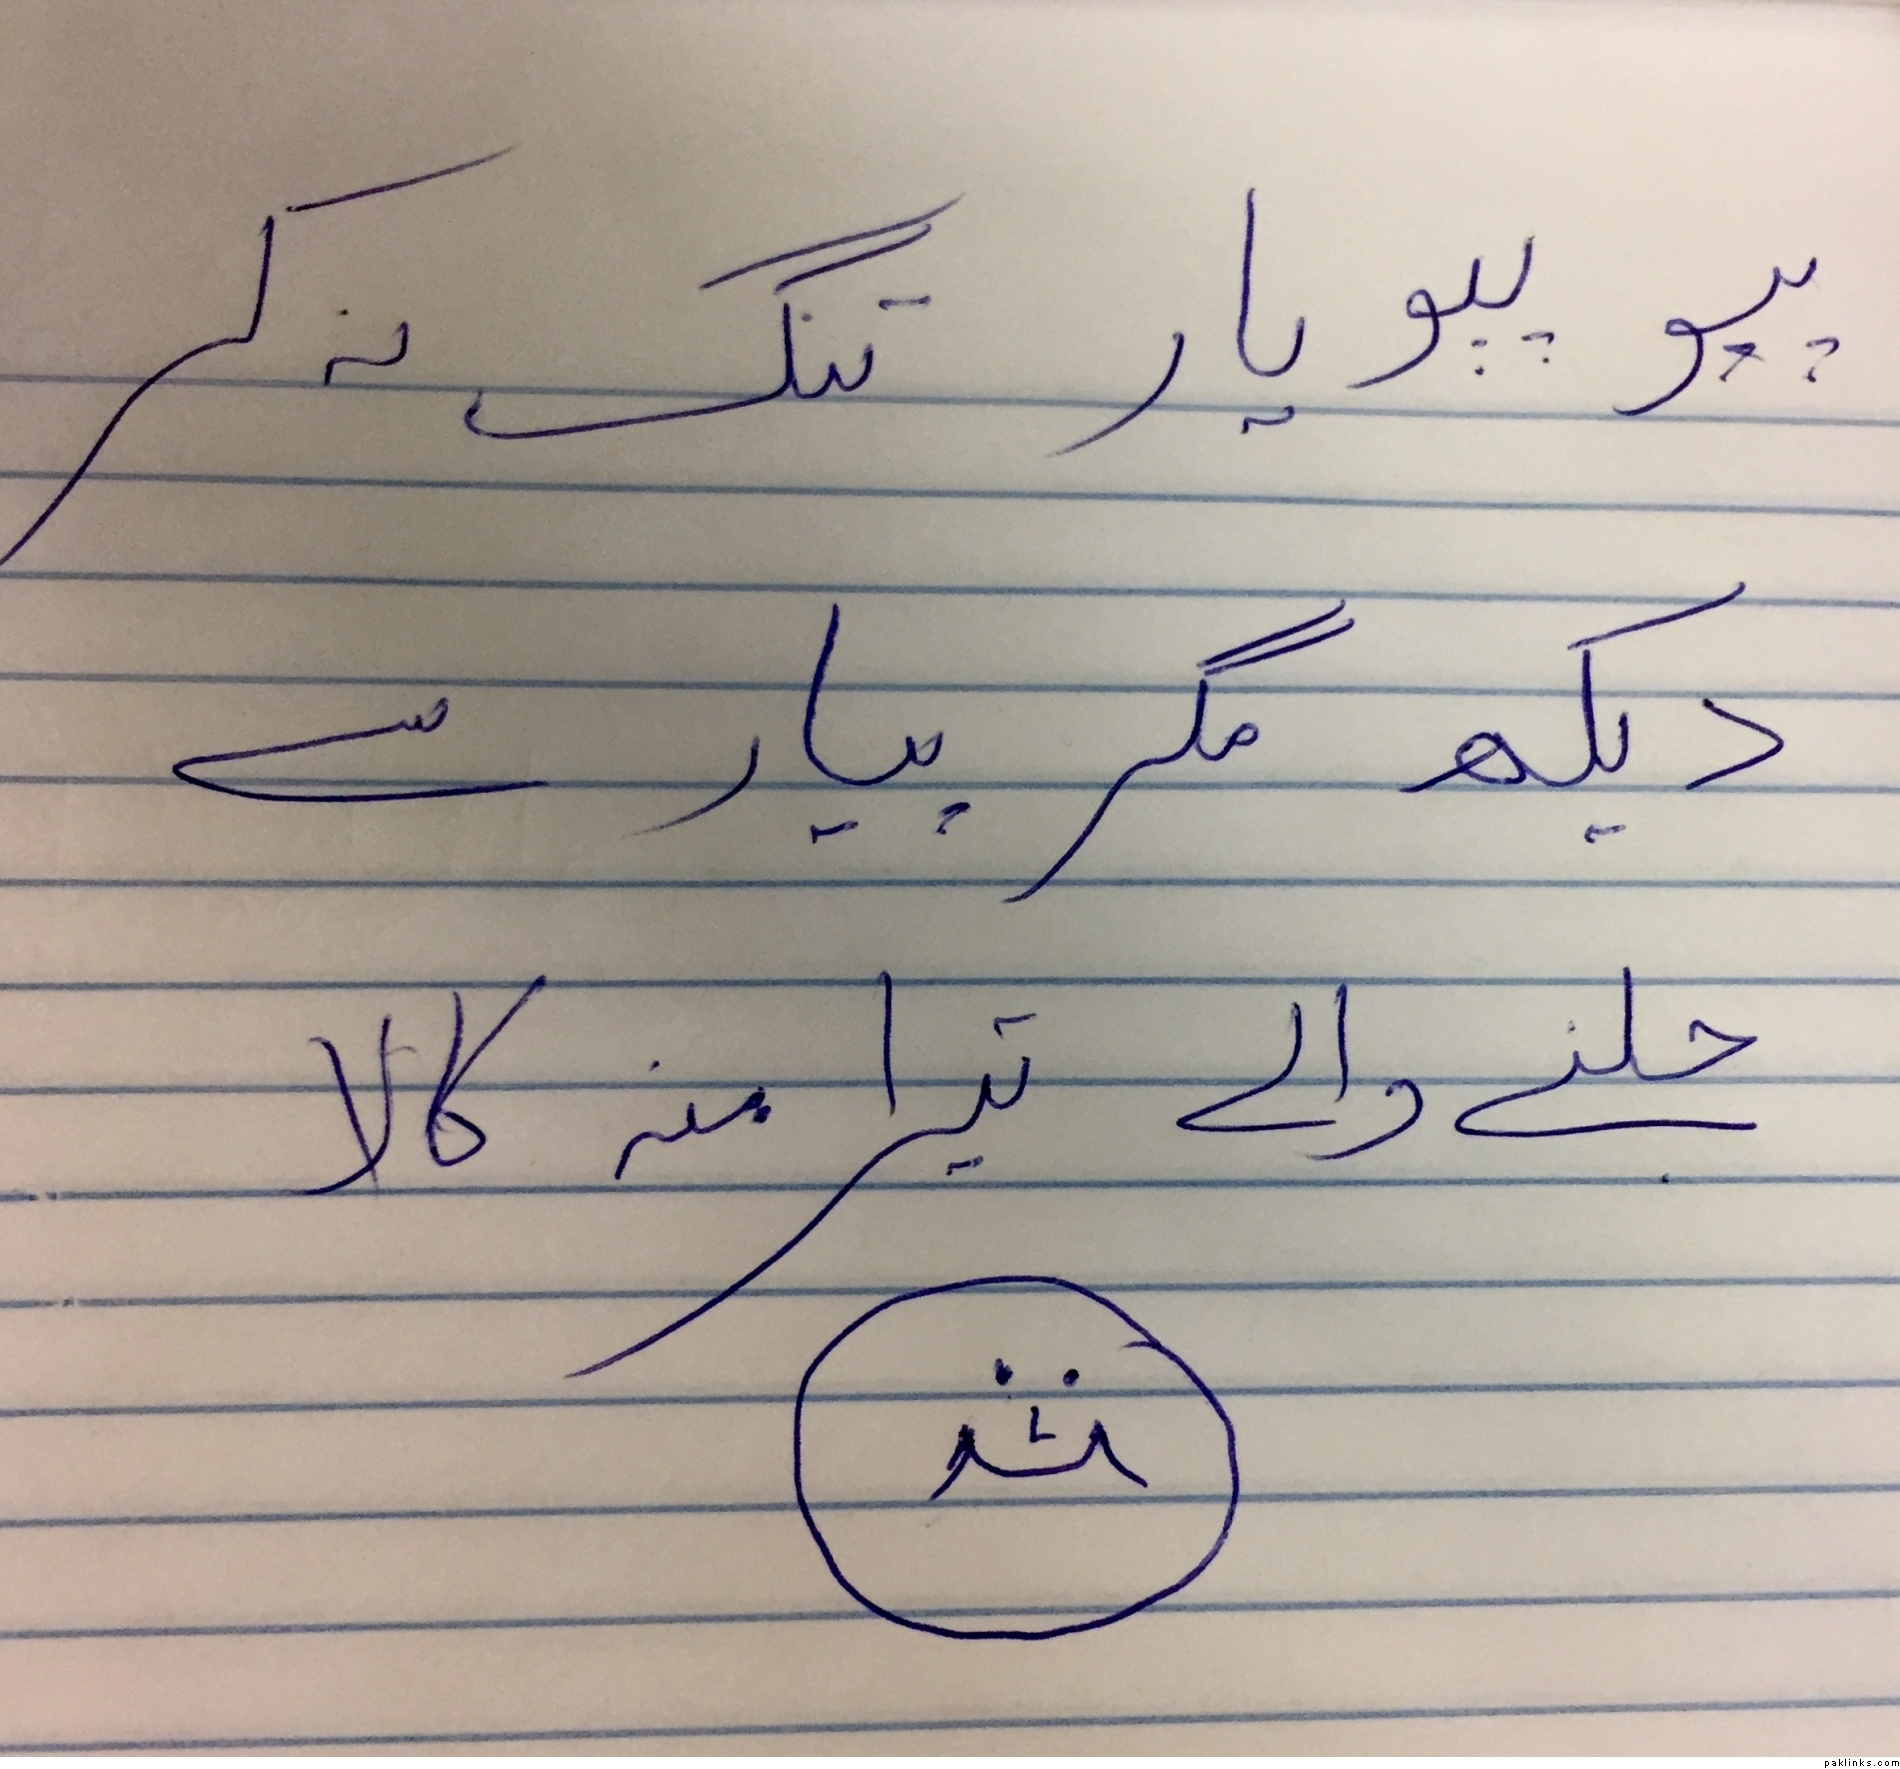 پپو پپو یار تنگ نہ کر
دیکھ مگر پیار سے
جلنے والے تیرا منہ کالا
paklinks.com